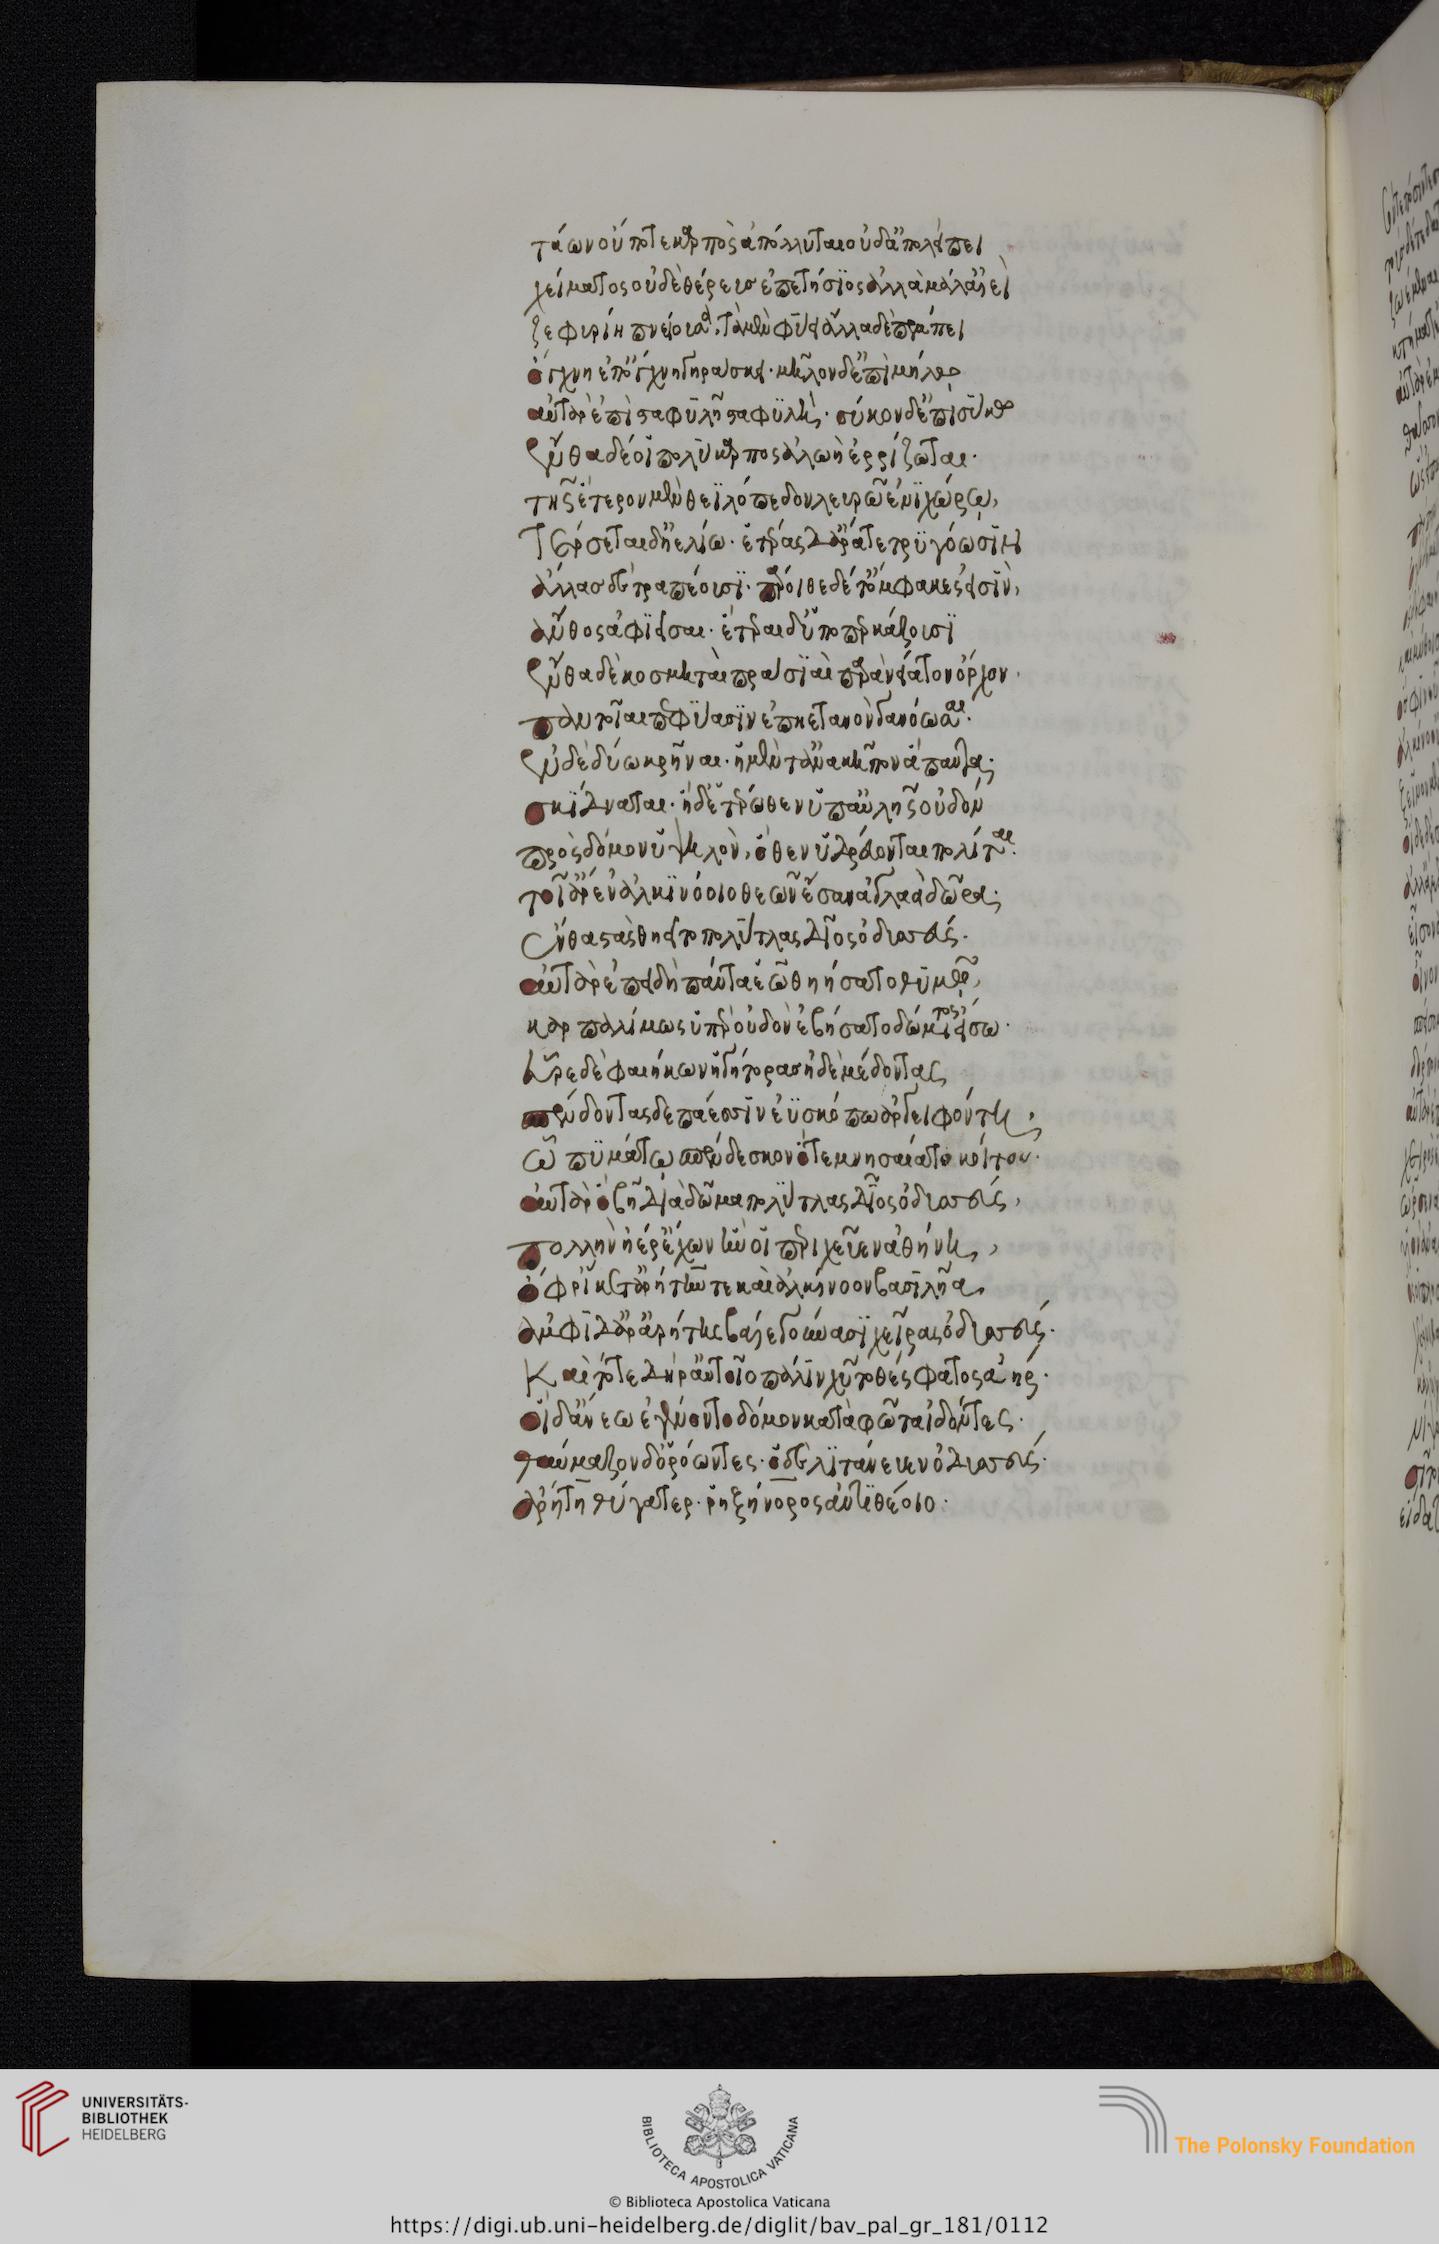 τάων οὔ ποτε καρπὸς ἀπόλλυται οὐδ' ἀπολείπει
χείματος οὐδὲ θέρευς ἐπετήσϊος ἀλλὰ μάλ' αἰεὶ
ζεφυρίη πνείουσα, τὰ μὲν φύει ἄλλα δὲ πέσσει
ὄγχνη ἐπ' ὄγχνη γηράσκει· μῆλον δ' ἐπὶ μήλῳ
αὐτὰρ ἐπὶ σταφυλῆ σταφϋλὴ· σύκον δ' ἐπὶ σύκῳ
ἔνθα δέ οἱ πολύκαρπος ἀλωὴ ἐρρίζωται·
τῆς ἕτερον μὲν θειλόπεδον λευρῶ ἐνὶ χώρω,
τέρσεται ἠελίω· ἑτέρας δ' ἄρα τε τρϋγόωσϊν
ἄλλας δὲ τραπέουσϊ· πάροιθε δέ τ' ὄμφακες εἰσὶν,
ἄνθος ἀφιεῖσαι· ἕτεραι δ' ὑποπερκάζουσϊ
ἔνθα δὲ κοσμηταὶ πρασϊαὶ παρὰ νείατον ὄρχον·
παντοῖαι πεφύασϊν ἐπηετανὸν γανόωσαι·
ἐν δὲ δύω κρῆναι· ἡ μὲν τ' ἀνὰ κῆπον ἅπαντα·
σκίδναται· ἡ δ' ἑτέρωθεν ὑπ' αὐλῆς οὐδὸν
πρὸς δόμον ὑψηλὸν, ὅθεν ὑδρεύονται πολῖται·
τοῖ' ἄρ' ἐν ἀλκινόοιο θεῶν ἔσαν ἀγλαὰ δῶρα·
ἔνθα στὰς θηεῖτο πολύτλας δῖος ὀδυσσεύς·
αὐτὰρ ἐπειδὴ πάντα ἑῶ θηήσατο θυμῶ,
καρπαλίμως ὑπὲρ οὐδὸν ἐβήσατο δώματος εἴσω·
εὗρε δὲ φαιήκων ἡγήτορας ἠδὲ μέδοντας
σπένδοντας δεπάεσσϊν ἐϋσκόπω ἀργειφόντη,
ᾧ πϋμάτω σπένδεσκον ὅτε μνησαίατο κοίτου·
αὐτὰρ ὁ βῆ διὰ δῶμα πολύτλας δῖος ὀδυσσεύς,
πολλὴν ἠέρ' ἔχων ἣν οἱ περίχευεν ἀθήνη,
ὄφρ' ἵκετ' ἀρήτην τε καὶ ἀλκίνοον βασιλῆα,
ἀμφὶ δ' ἄρ' ἀρήτης βάλε γούνασϊ χεῖρας ὀδυσσεύς·
καὶ τότε δή ῥ' αὐτοῖο πάλϊν χύτο θέσφατος ἀήρ·
οἱ δ' ἄνεω ἐγένοντο δόμον κατὰ φῶτα ἰδόντες·
θαύμαζον δ' ὁρόωντες· ὁ δὲ λϊτάνευεν ὀδυσσεύς·
ἀρήτη θύγατερ· ῥηξήνορος ἀντϊθέοιο·
UNIVERSITÄTS-
BIBLIOTHEK
HEIDELBERG
BIBLIOTECA APOSTOLICA VATICANA
© Biblioteca Apostolica Vaticana
The Polonsky Foundation
https://digi.ub.uni-heidelberg.de/diglit/bav_pal_gr_181/0112